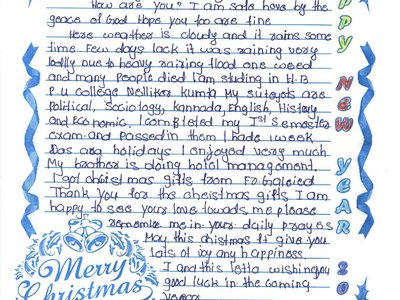 How are you? I am safe here by the
geace of Good Hope you too are fine
Here weather is cloudy and it rains some
time Few days lack it was raining very
lodlly due to heavy raining flood one weed
and many People died I am studing in H.B
P.U college Nelliker kumta My subjects are
Political, Sociology, kannada, English, History
and Economic, I completed my Ist semester
exam and Passed in them I hade week
Das ara holidays I enjoyed very much
My brother is doing hotel management.
I got christmas gifts from Fr.
Thank you for the cheistmas gifts I am
happy to see your love towads me please
remembe me in your daily prayes
May this chistmas fi give you
lots of joy any happiness.
I and this letta wishing you
good luck in the coming
yeear
Merry
Christmas
PPY NEW YEAR 20